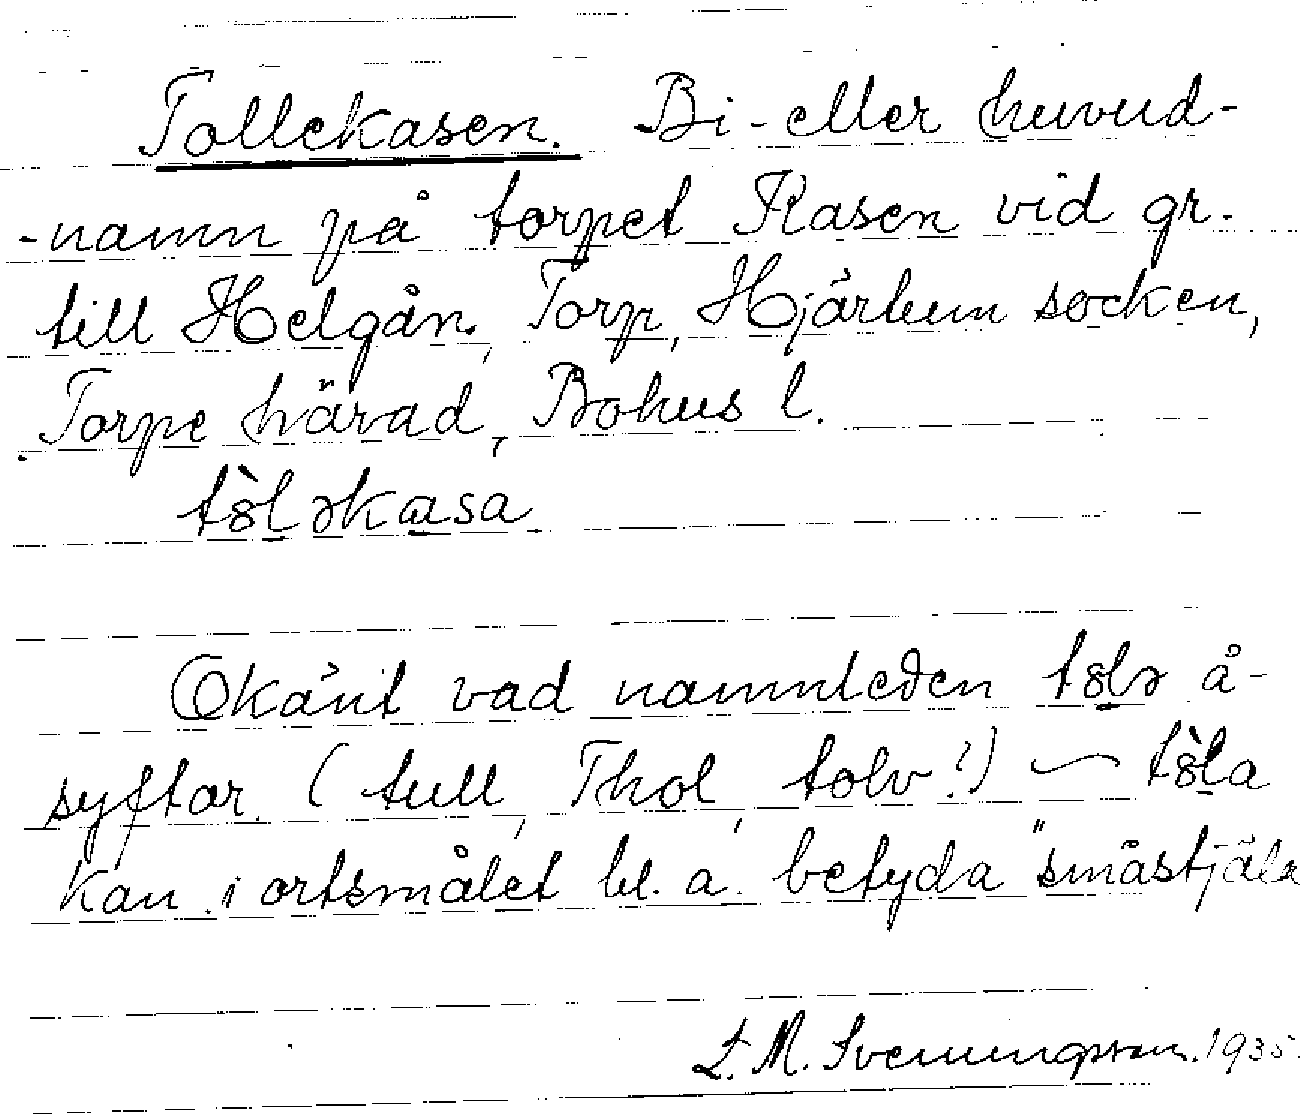 Tollekasen. Bi- eller huvud-
-namn på torpet Kasen vid gr.
till Helgån, Torp, Hjärtum socken,
Torpe härad, Bohus l.
tòləkasa
Okänt vad namnleden tolə å-
syftar. (tull, Thol, tolv?) — tòla
kan i ortsmålet bl. a. betyda "småstjäla
L. M. Svenungsson. 1935.